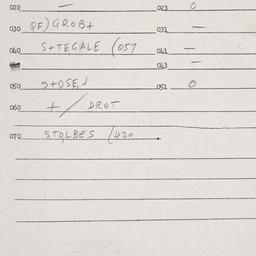 022 — 023 O
030 PF) GROB+ 032 —
040 S+TEGALE (057 041 —
043 —
050 S+OSE,J 051 O
060 + / DROT
070 STO,BES (420